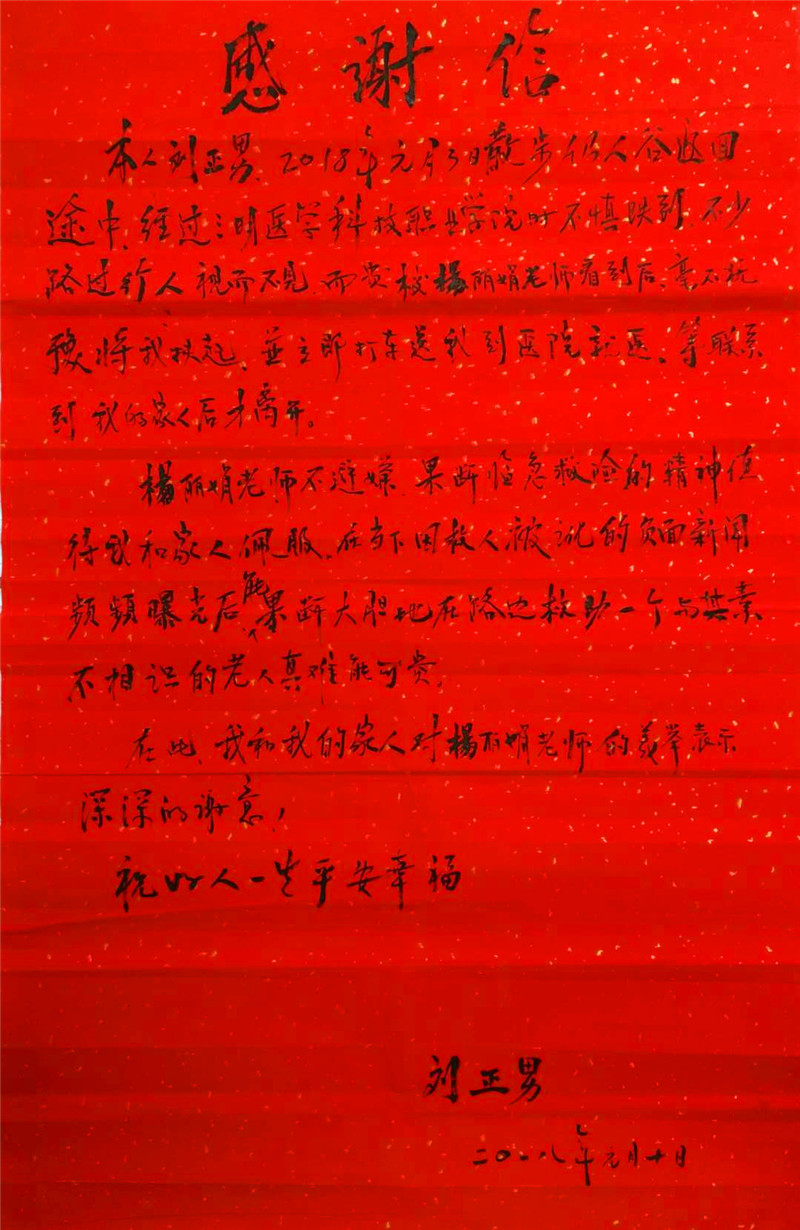 感谢信
本人刘正男,2018年元月3日散步仙人谷返回
途中,经过三明医学科技职业学院时不慎跌到,不少
路过行人视而不见,而贵校楊丽娟老师看到后,毫不犹
豫将我扶起,並立即打车送我到医院就医。等联系
到我的家人后才离开。
楊丽娟老师不避嫌,果断临急救险的精神值
得我和家人佩服,在当下因救人被讹的负面新闻
頻頻曝光后能果断大胆地在路边救助一个与其素
不相识的老人真难能可贵。
在此,我和我的家人对楊丽娟老师的義举表示
深深的谢意!
祝好人一生平安幸福
刘正男
二〇一八年元月十日